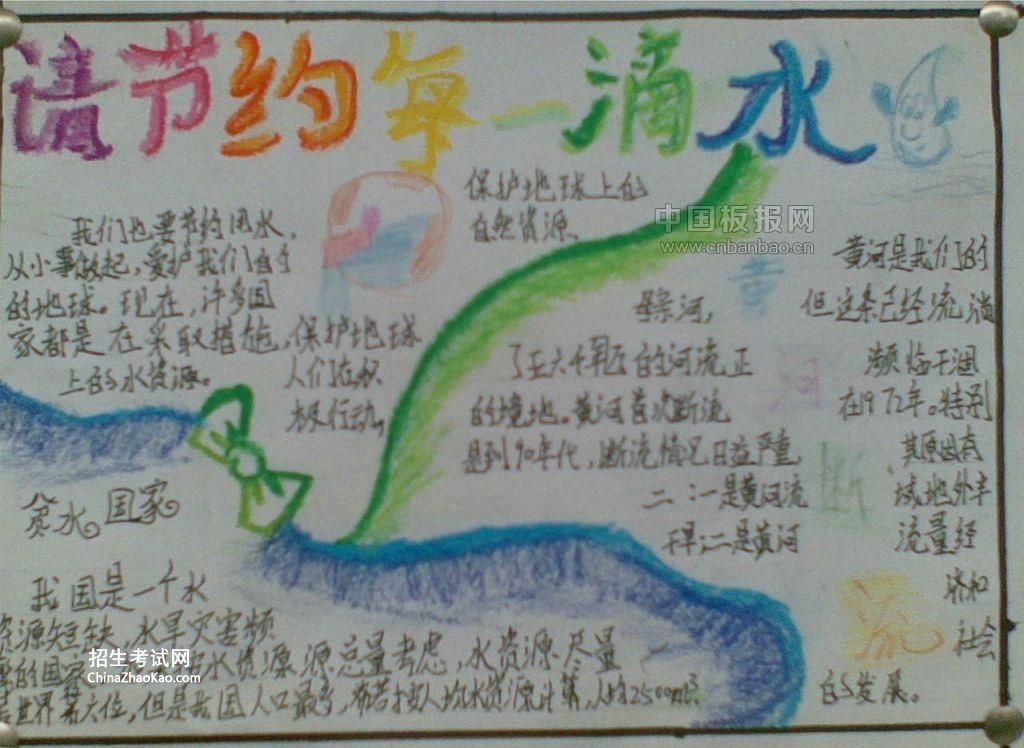 请节约每一滴水
我们也要节约用水，
从小事做起，爱护我们自己
的地球。现在，许多国
家都是在采取措施，保护地球
上的水资源。
人们在积
极行动。
保护地球上的
自然资源。
中国板报网
www.cnbanbao.cn
黄河断流
黄河是我们的
母亲河，
但这条已经流淌
了五六千年的河流正
濒临干涸
的境地。黄河首次断流
在1972年。特别
是到90年代，断流情况日益严重，
其原因有
二：一是黄河流
域地处半
干旱；二是黄河
流量经
济和
社会
的发展。
贫水国家
我国是一个水
资源短缺，水旱灾害频
的国家
水资源源总量考虑，水资源尽量
世界第六位，但是我国人口最多，若按人均水资源计算，人均2500
招生考试网
ChinaZhaoKao.com